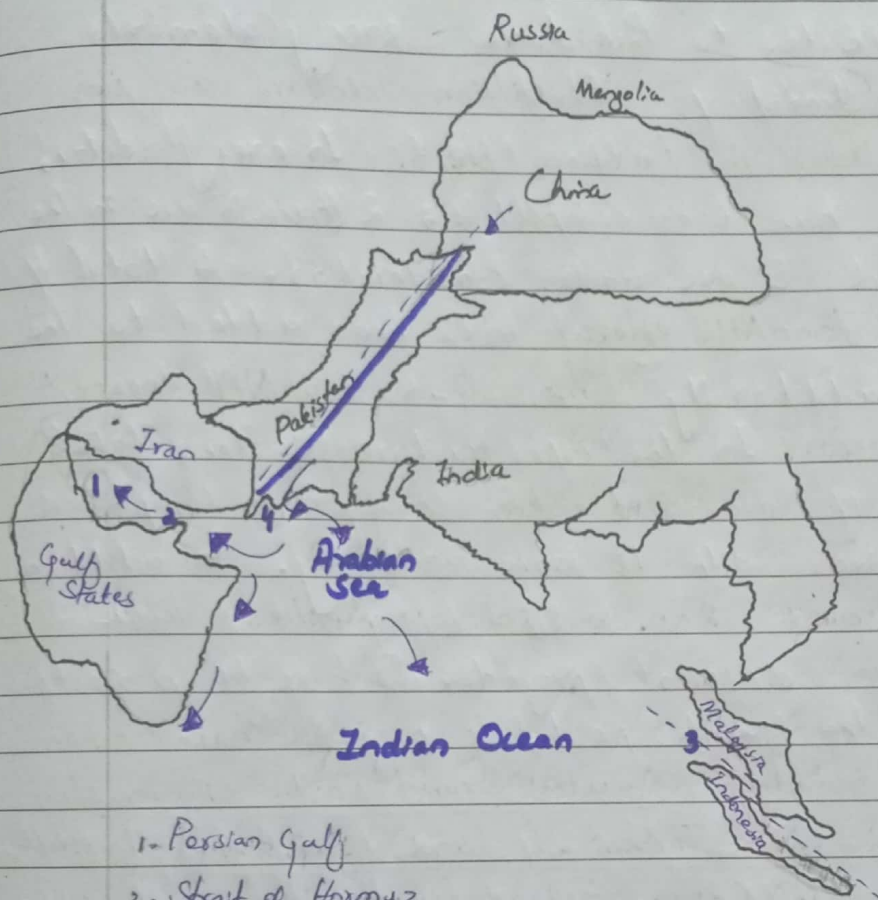 Russia
Mengolia
China
Pakistan
Iran
India
1
2
4
Gulf
States
Arabian
Sea
Indian Ocean
3
Malaysia
Indonesia
1. Persian Gulf
2. Strait of Hormuz